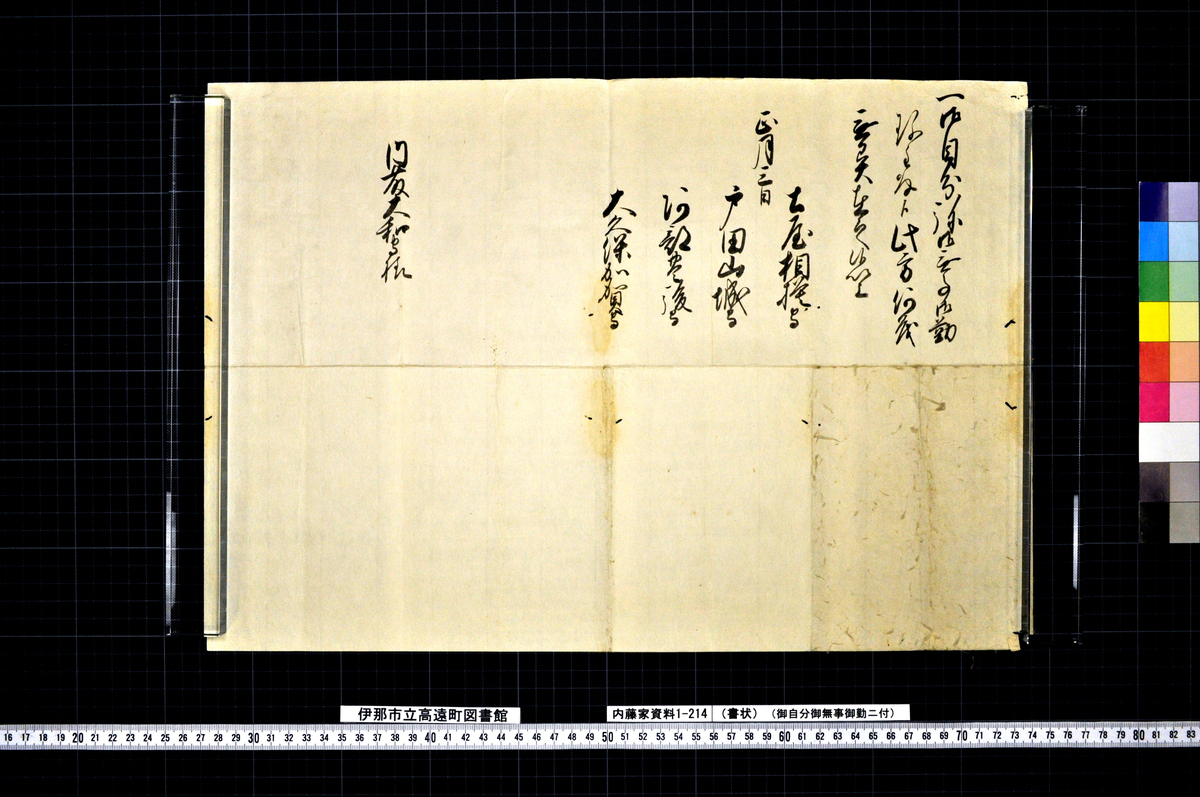 一御自分弥御無事御勤
珍重存候此方何茂
無異在之候以上
正月三日
土屋相模守
戸田山城守
阿部豊後守
大久保加賀守
内藤大和守様
伊那市立高遠町図書館
内藤家資料1-214 (書状) (御自分御無事御勤ニ付)
16 17 18 19 20 21 22 23 24 25 26 27 28 29 30 31 32 33 34 35 36 37 38 39 40 41 42 43 44 45 46 47 48 49 50 51 52 53 54 55 56 57 58 59 60 61 62 63 64 65 66 67 68 69 70 71 72 73 74 75 76 77 78 79 80 81 82 83